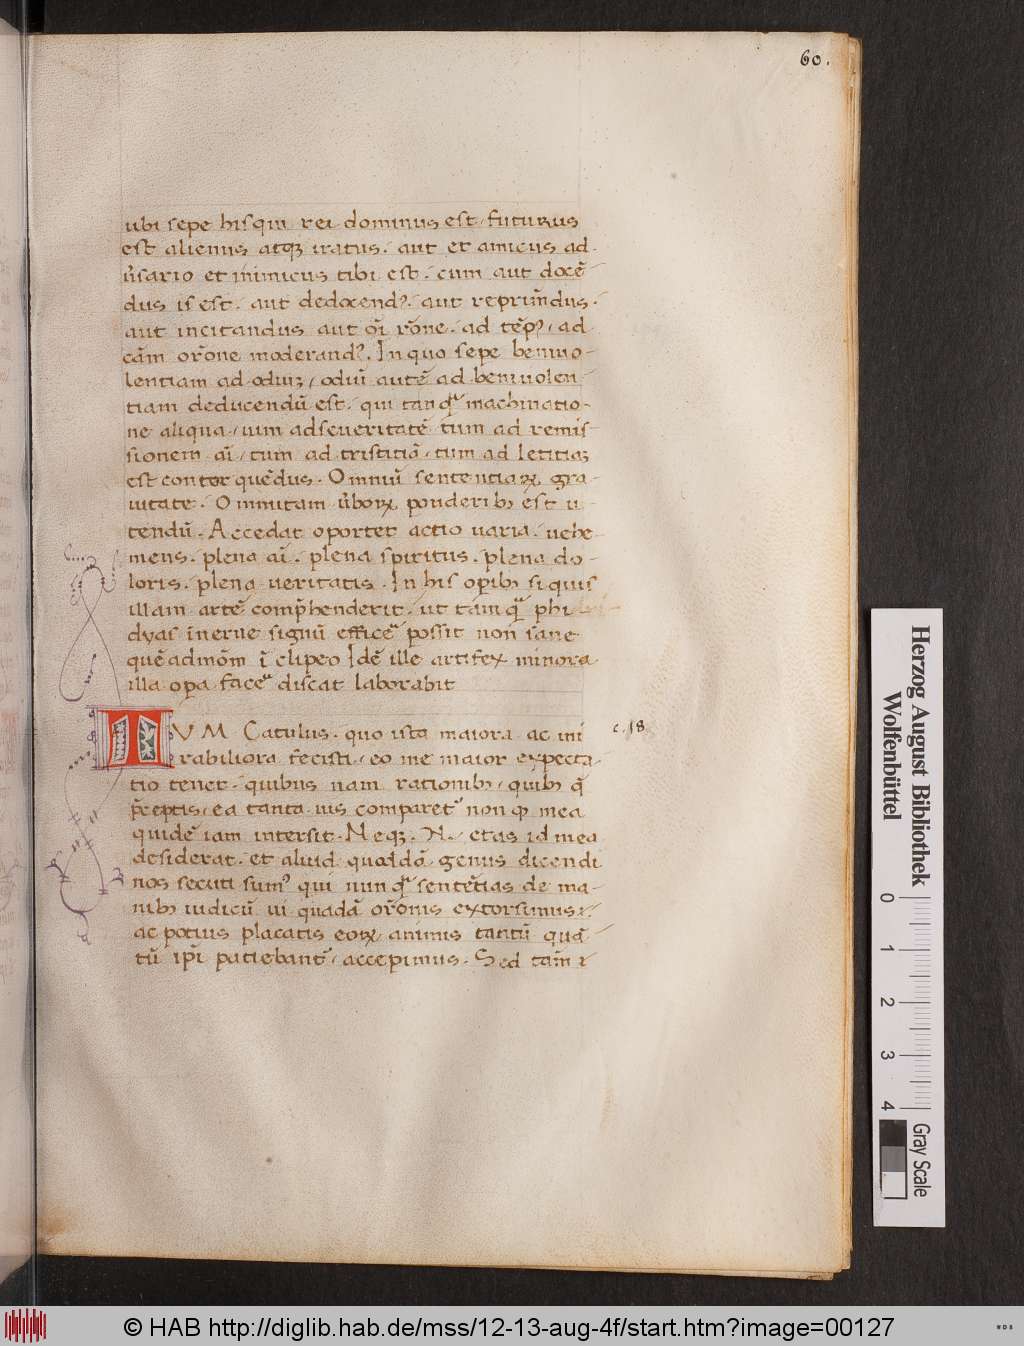 60.
ubi sepe his qui rei dominus est, futurus
est alienus atqꝫ iratus. aut et amicus ad-
ũsario et inimicus tibi est. cum aut docẽ
dus is est. aut dedocendꝰ. aut reprim̃dus.
aut incitandus aut oĩ rõne. ad tẽpꝰ, ad
cãm orõne moderandꝰ. In quo sepe beniuo-
lentiam ad odiuꝫ, odiũ autẽ ad beniuolen
tiam deducendũ est. qui tanqᷓ machinatio-
ne aliqua, tum ad seueritatẽ tum ad remis-
sionem aĩ, tum ad tristitiã, tum ad letitiaꝫ
est contorquẽdus. Omniũ sententiaꝝ gra-
uitate. Omnium ũboꝝ ponderibꝫ est u-
tendũ. Accedat oportet actio uaria. uehe
mens. plena aĩ. plena spiritus. plena do-
loris. plena ueritatis. In his opibꝫ si quis
illam artẽ comp̃henderit. ut tamqᷓ phi
dyas inerue signũ efficẽ possit non sane
quẽadmõm ĩ clipeo Idẽ ille artifex minora
illa opa facẽ discat laborabit
TVM Catulus. quo ista maiora ac mi
rabiliora fecisti, eo me maior expecta-
tio tenet. quibus nam rationibꝫ, quibꝫ q̃
p̃ceptis, ea tanta uis comparetᷣ non qꝫ mea
quidẽ iam intersit. Neqꝫ .N. etas id mea
desiderat. et aliud quoddã genus dicendi
nos secuti sumꝰ qui nunqᷓ sentẽtias de ma-
nibꝫ iudicũ ui quadã orõnis extorsimus.
ac potius placatis eoꝝ animis tantũ quã
tũ ip̃i patiebantᷣ, accepimus. Sed tam̃ ⁊
c. 18.
Herzog August Bibliothek
Wolfenbüttel
0 1 2 3 4
Gray Scale
© HAB http://diglib.hab.de/mss/12-13-aug-4f/start.htm?image=00127